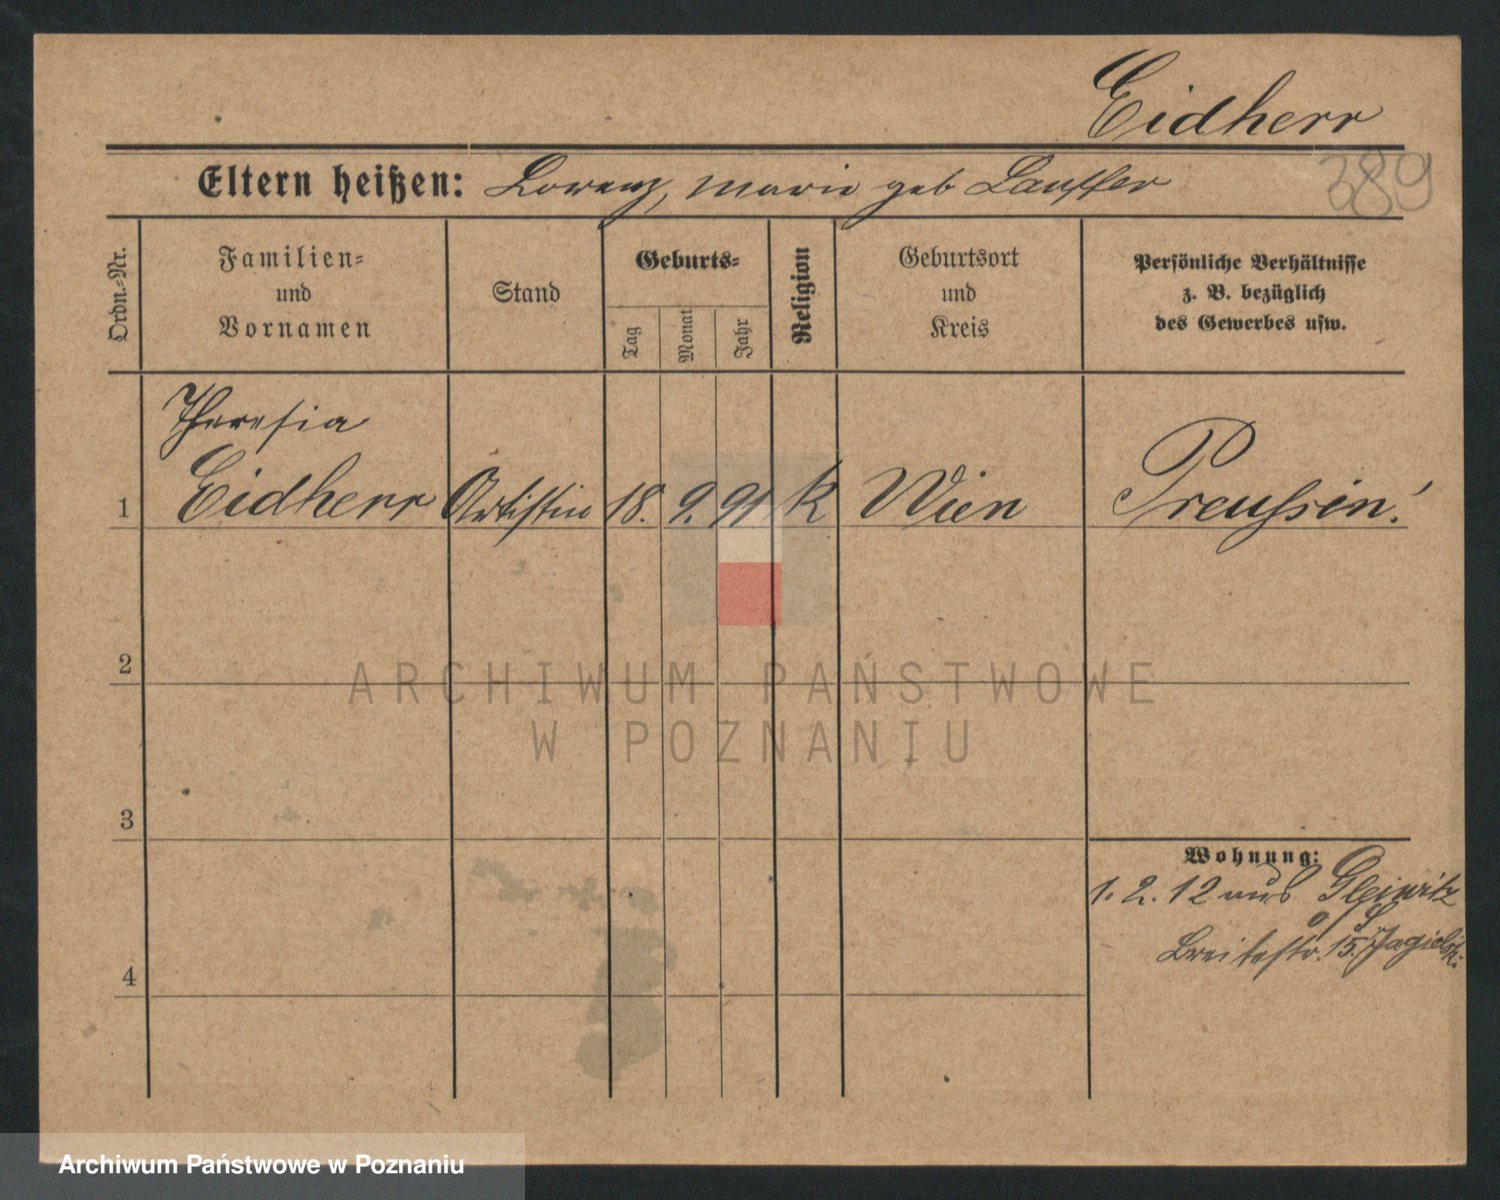 Eidherr
389
Eltern heißen: Lorenz, Marie geb Lauffer
Ordn.-Nr.
Familien-
und
Vornamen
Stand
Geburts-
Tag
Monat
Jahr
Religion
Geburtsort
und
Kreis
Persönliche Verhältnisse
z. B. bezüglich
des Gewerbes usw.
Theresia
1 Eidherr Artistin 18. 9. 91 K Wien Preussin!
2
ARCHIWUM PAŃSTWOWE
W POZNANIU
3
Wohnung:
1. 2. 12 aus Gleiwitz
Breitestr. 15. Jagielski
4
Archiwum Państwowe w Poznaniu